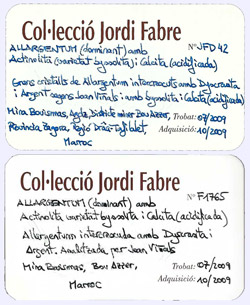 Col·lecció Jordi Fabre
ALLARGENTUM (dominant) amb Nº JFD42
Actinolita (varietat byssolita) i Calcita (acidificada)
Grans cristalls de Allargentum intercrescuts amb Dyscrasita
i Argent segons Joan Viñals i amb byssolita i Calcita (acidificada)
Mina Bouismas, Bou Azzer, Trobat: 07/2009
Província Tagora, Regió Drâa-Tafilalet, Adquisició: 10/2009
Marroc
Col·lecció Jordi Fabre
ALLARGENTUM (dominant) amb Nº F1765
Actinolita varietat byssolita i Calcita (acidificada)
Allargentum intercrescuda amb Dyscrasita i
Argent. Analitzada per Joan Viñals
Mina Bouismas, Bou Azzer, Trobat: 07/2009
Marroc Adquisició: 10/2009